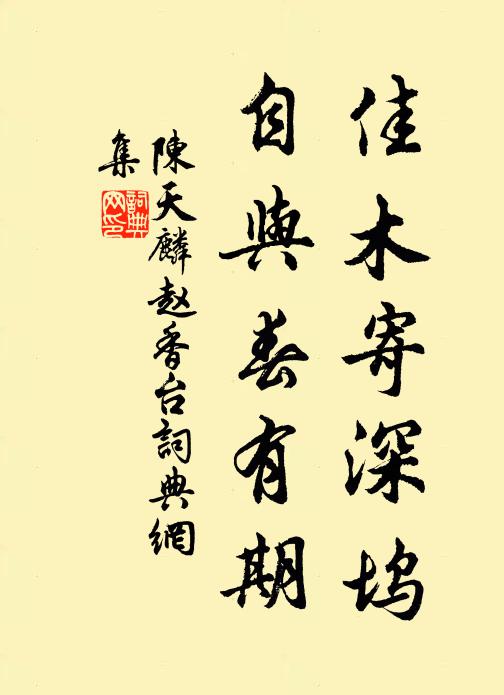 佳木寄深塢
自與春有期
陳天麟赵香台詞典網
集
詞典網印